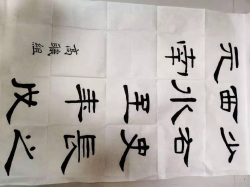 少古史長之
西水至年戊
元南
高誠組